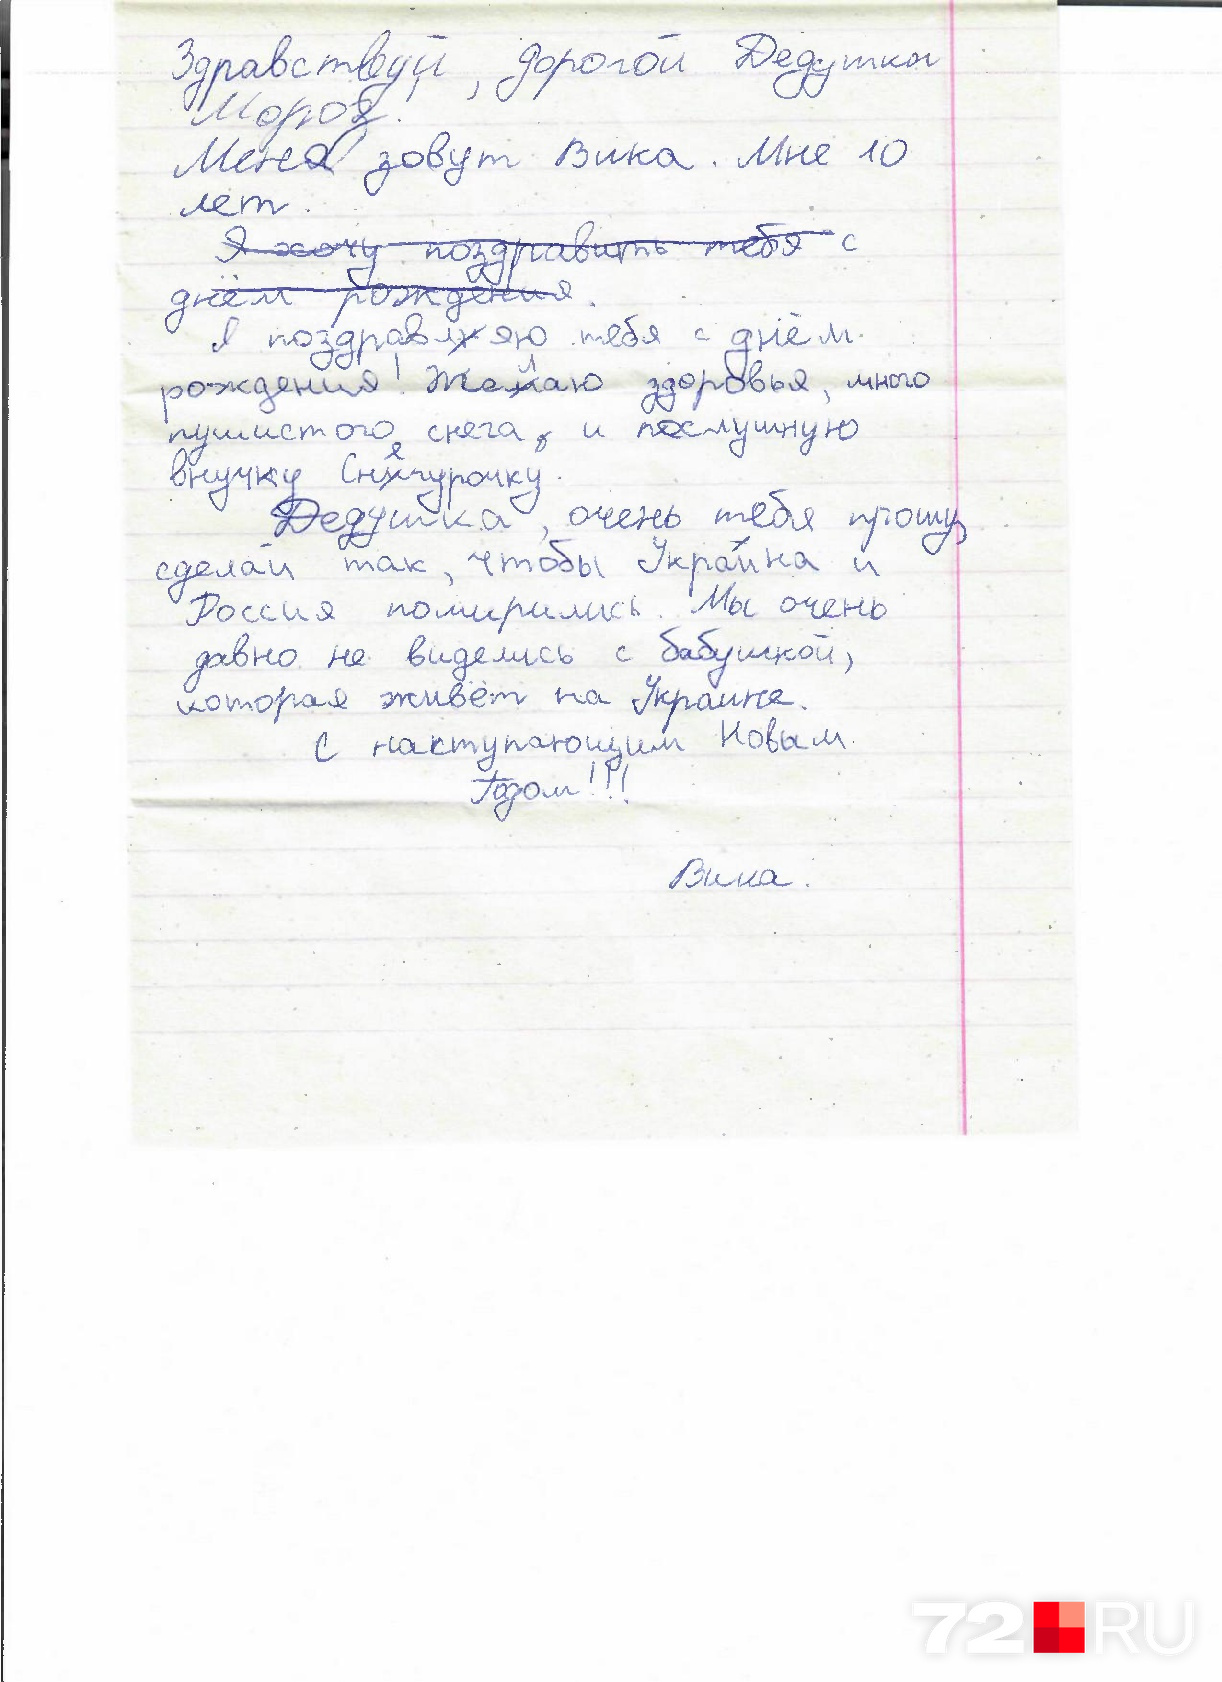 Здравствуй, дорогой Дедушка
Мороз.
Меня зовут Вика. Мне 10
лет.
Я хочу поздравить тебя с
днём рождения.
Я поздравляю тебя с днём
рождения! Желаю здоровья, много
пушистого снега, и послушную
внучку Снягурочку.
Дедушка, очень тебя прошу,
сделай так, чтобы Украина и
Россия помирились. Мы очень
давно не виделись с бабушкой,
которая живёт на Украине.
С наступающим Новым
Годом!!!
Вика.
72 RU